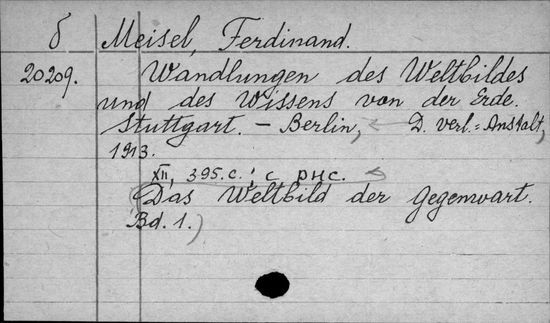 б Meisel, Ferdinand.
20209. Wandlungen des Weltbildes
und des Wissens von der Erde.
Stuttgart. – Berlin, D. Verl.=Anstalt,
1913.
XII, 395.c.; с рис.
(Das Weltbild der Gegenwart.
Bd. 1.)